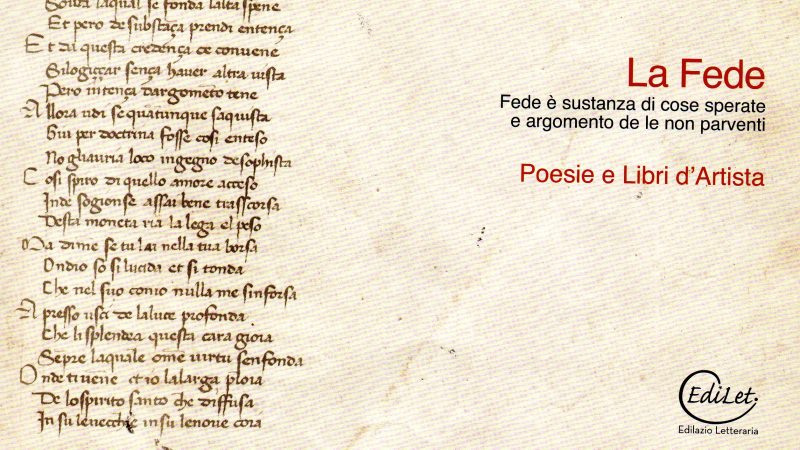 Soura laqual se fonda lalta spene
Et pero de substãça prendi entença
Et da questa credença ce convene
Silogiççar sença haver altra vista
Pero intença dargometo tene
Allora udi se quatunque saquista
Giu per doctrina fosse cosi enteso
No ghauria loco ingegno desophista
Cosi spiro di quello amore acceso
Inde sogionse assai bene trasscorsa
Desta moneta ria la lega el peso
Ma dime se tu lai nella tua borsa
Ondio so si lucida et si tonda
Che nel suo conio nulla me sinforsa
Apresso usci de laluce profonda
Che li splendea questa cara gioia
Sepre laquale ome virtu senfonda
Onde ti vene et io lalarga ploia
De lo spirito santo che diffusa
In su levecchie in su lenove coia
La Fede
Fede è sustanza di cose sperate
e argomento de le non parventi
Poesie e Libri d'Artista
EdiLet
Edilazio Letteraria